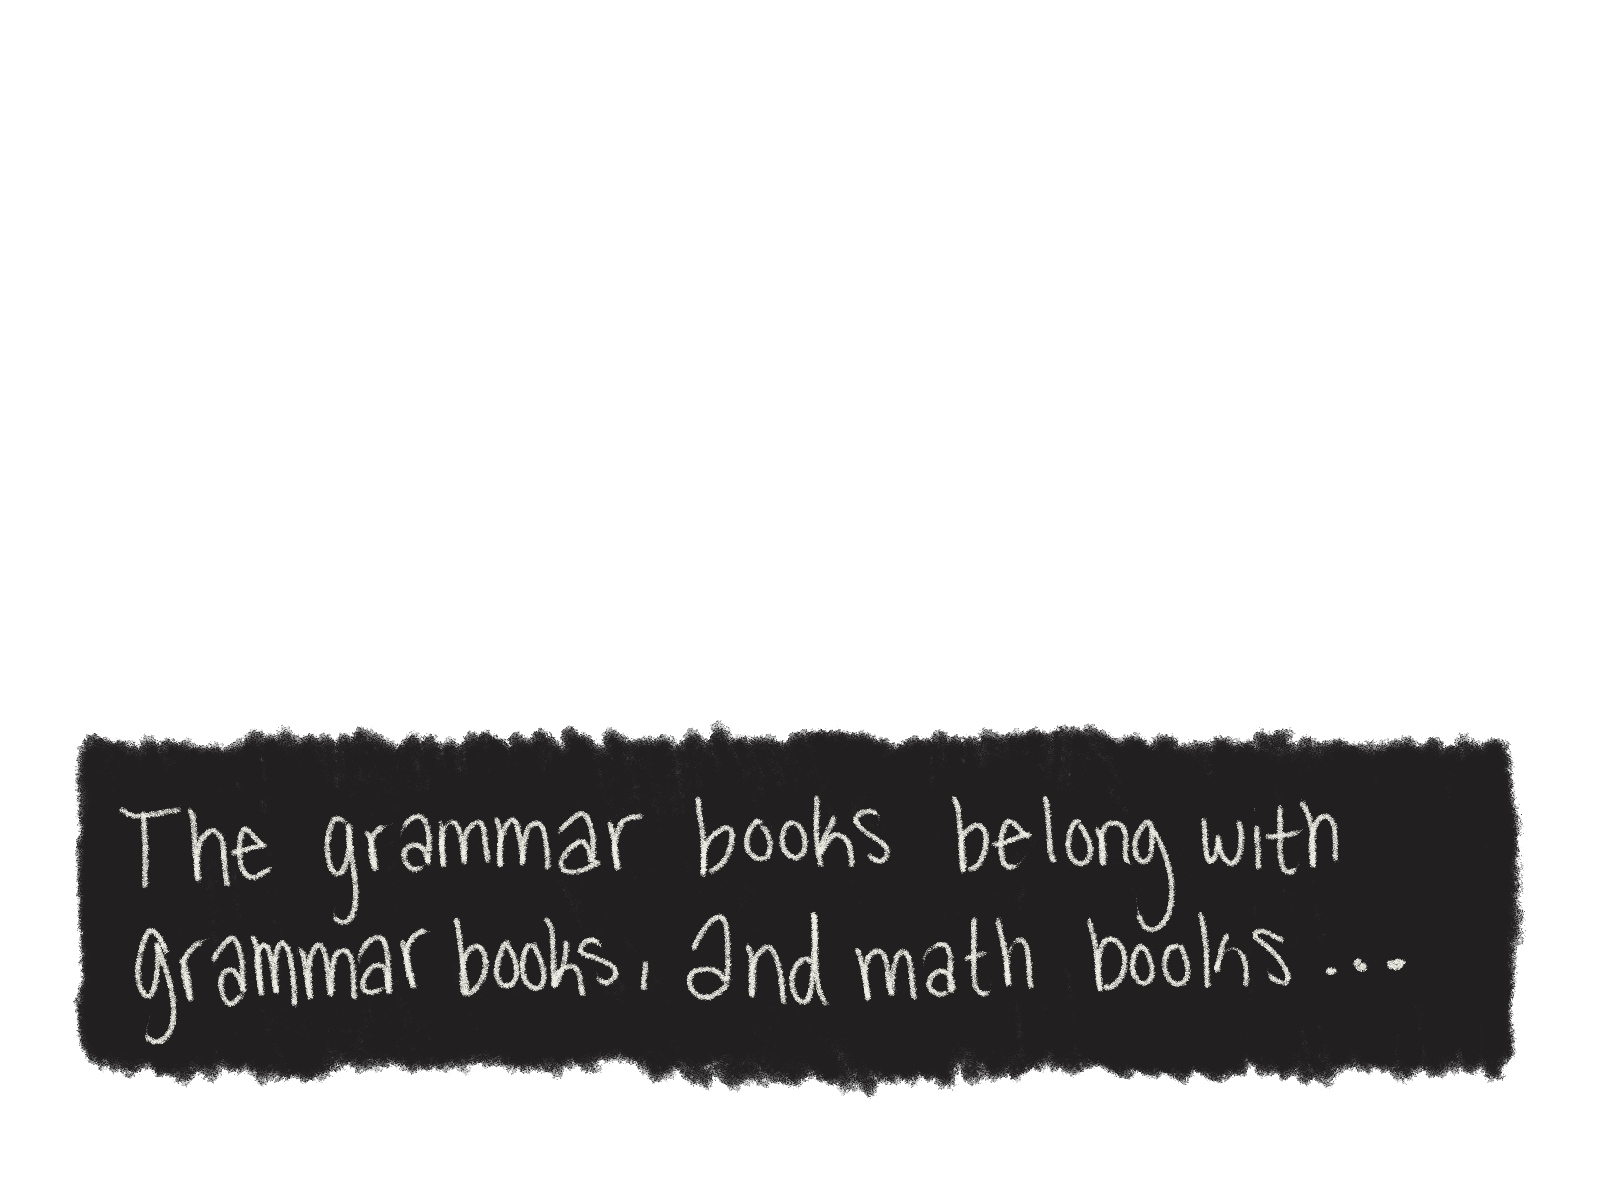 The grammar books belong with
grammar books, and math books...